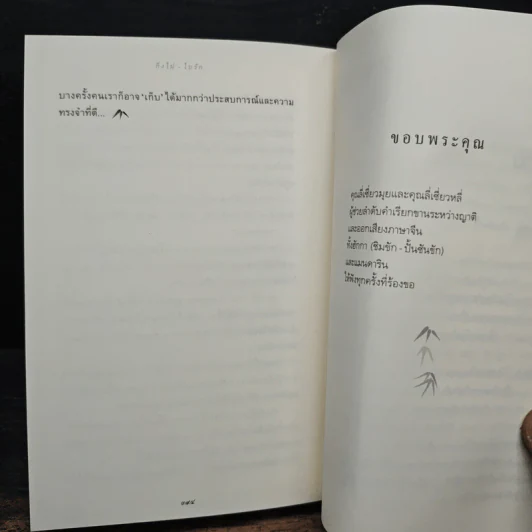 บางครั้งคนเราก็อาจ ‘เก็บ’ ได้มากกว่าประสบการณ์และความ
ทรงจำที่ดี...
ขอบพระคุณ
คุณลี่เซี่ยวมุยและคุณลี่เซี่ยวหลี่
ผู้ช่วยลำดับคำเรียกขานระหว่างญาติ
และออกเสียงภาษาจีน
ทั้งฮักกา (ซิมขัก - ปั้นซันขัก)
และแมนดาริน
ให้ฟังทุกครั้งที่ร้องขอ